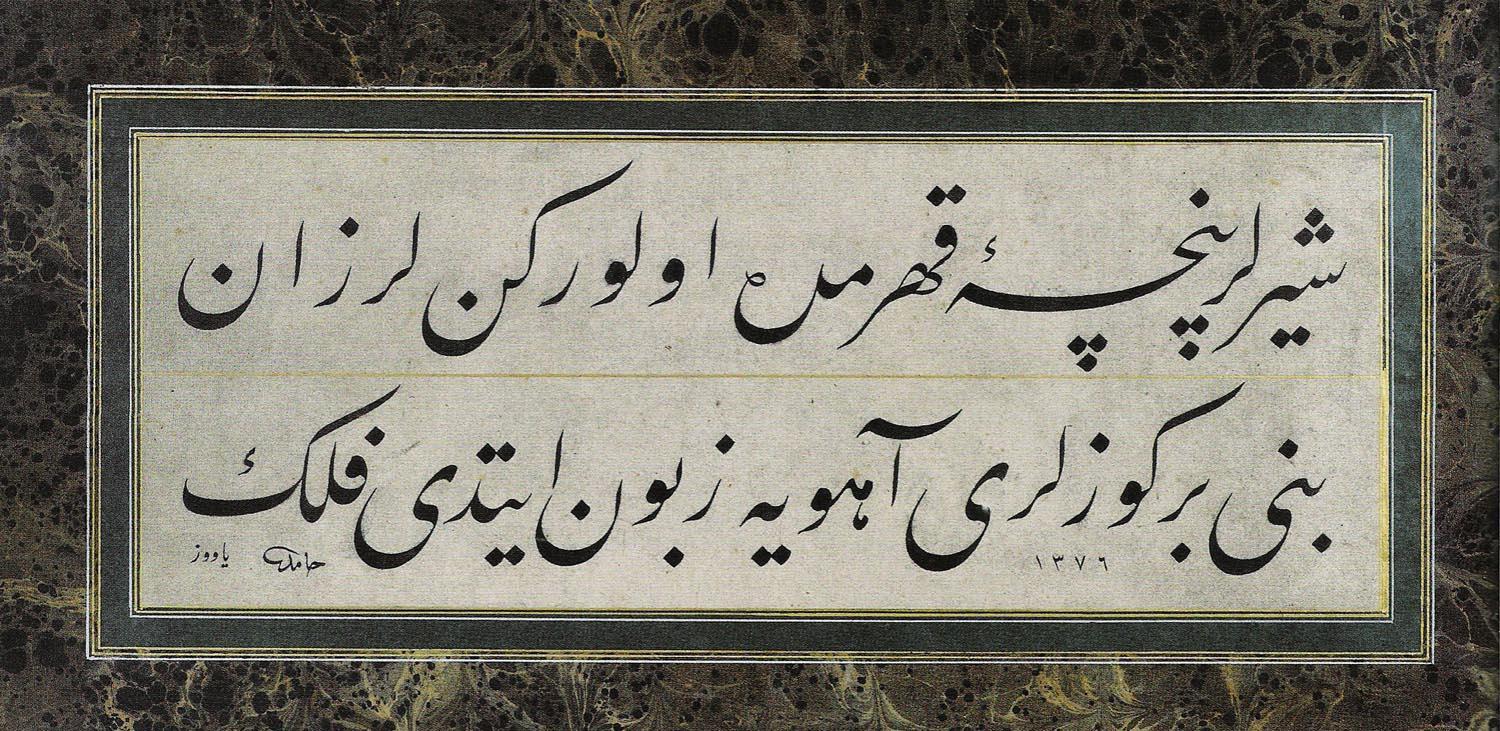 شیرلر پنچۀ قهرمده اولورکن لرزان
بنی بر کوزلری آهویه زبون ایتدی فلک
۱۳۷٦ حامد یاووز